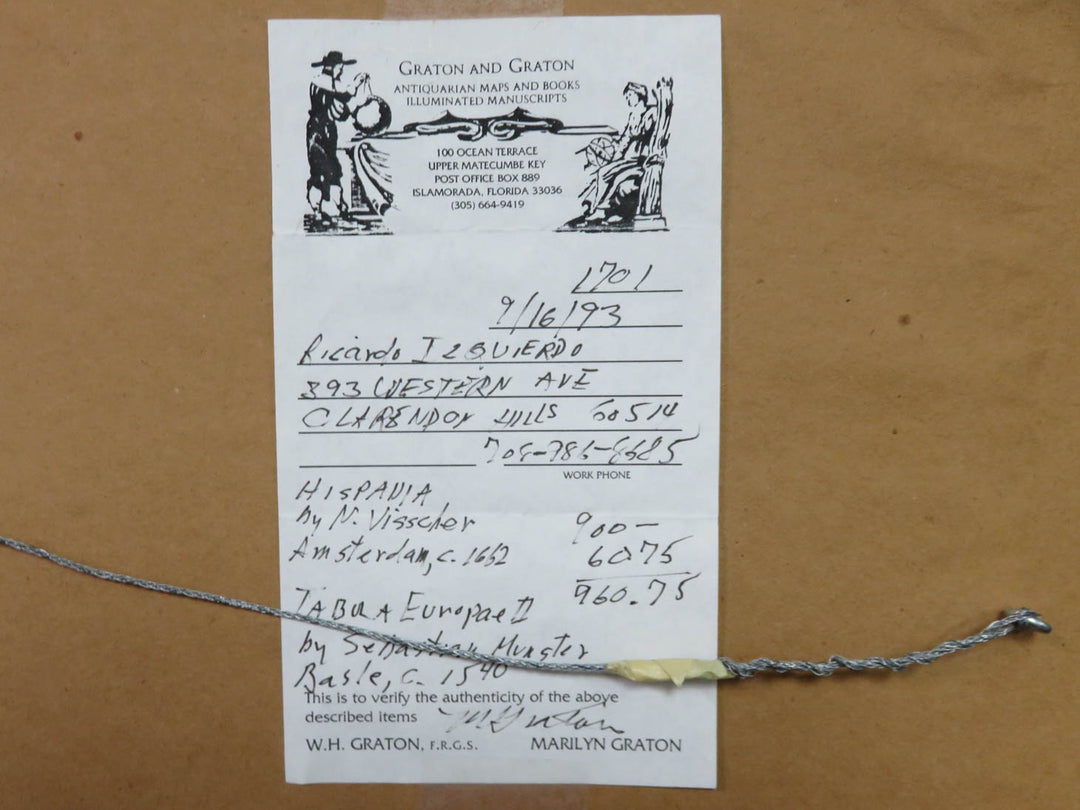 GRATON AND GRATON
ANTIQUARIAN MAPS AND BOOKS
ILLUMINATED MANUSCRIPTS
100 OCEAN TERRACE
UPPER MATECUMBE KEY
POST OFFICE BOX 889
ISLAMORADA, FLORIDA 33036
(305) 664-9419
1701
9/16/93
Ricardo IZQUIERDO
393 WESTERN AVE
CLARENDON HILLS 60514
WORK PHONE
HISPANIA
by N. Visscher 900-
Amsterdam, c. 1652 6075
960.75
TABULA Europae II
by Sebastian Munster
Basle, c. 1540
This is to verify the authenticity of the above
described items
W.H. GRATON, F.R.G.S. MARILYN GRATON